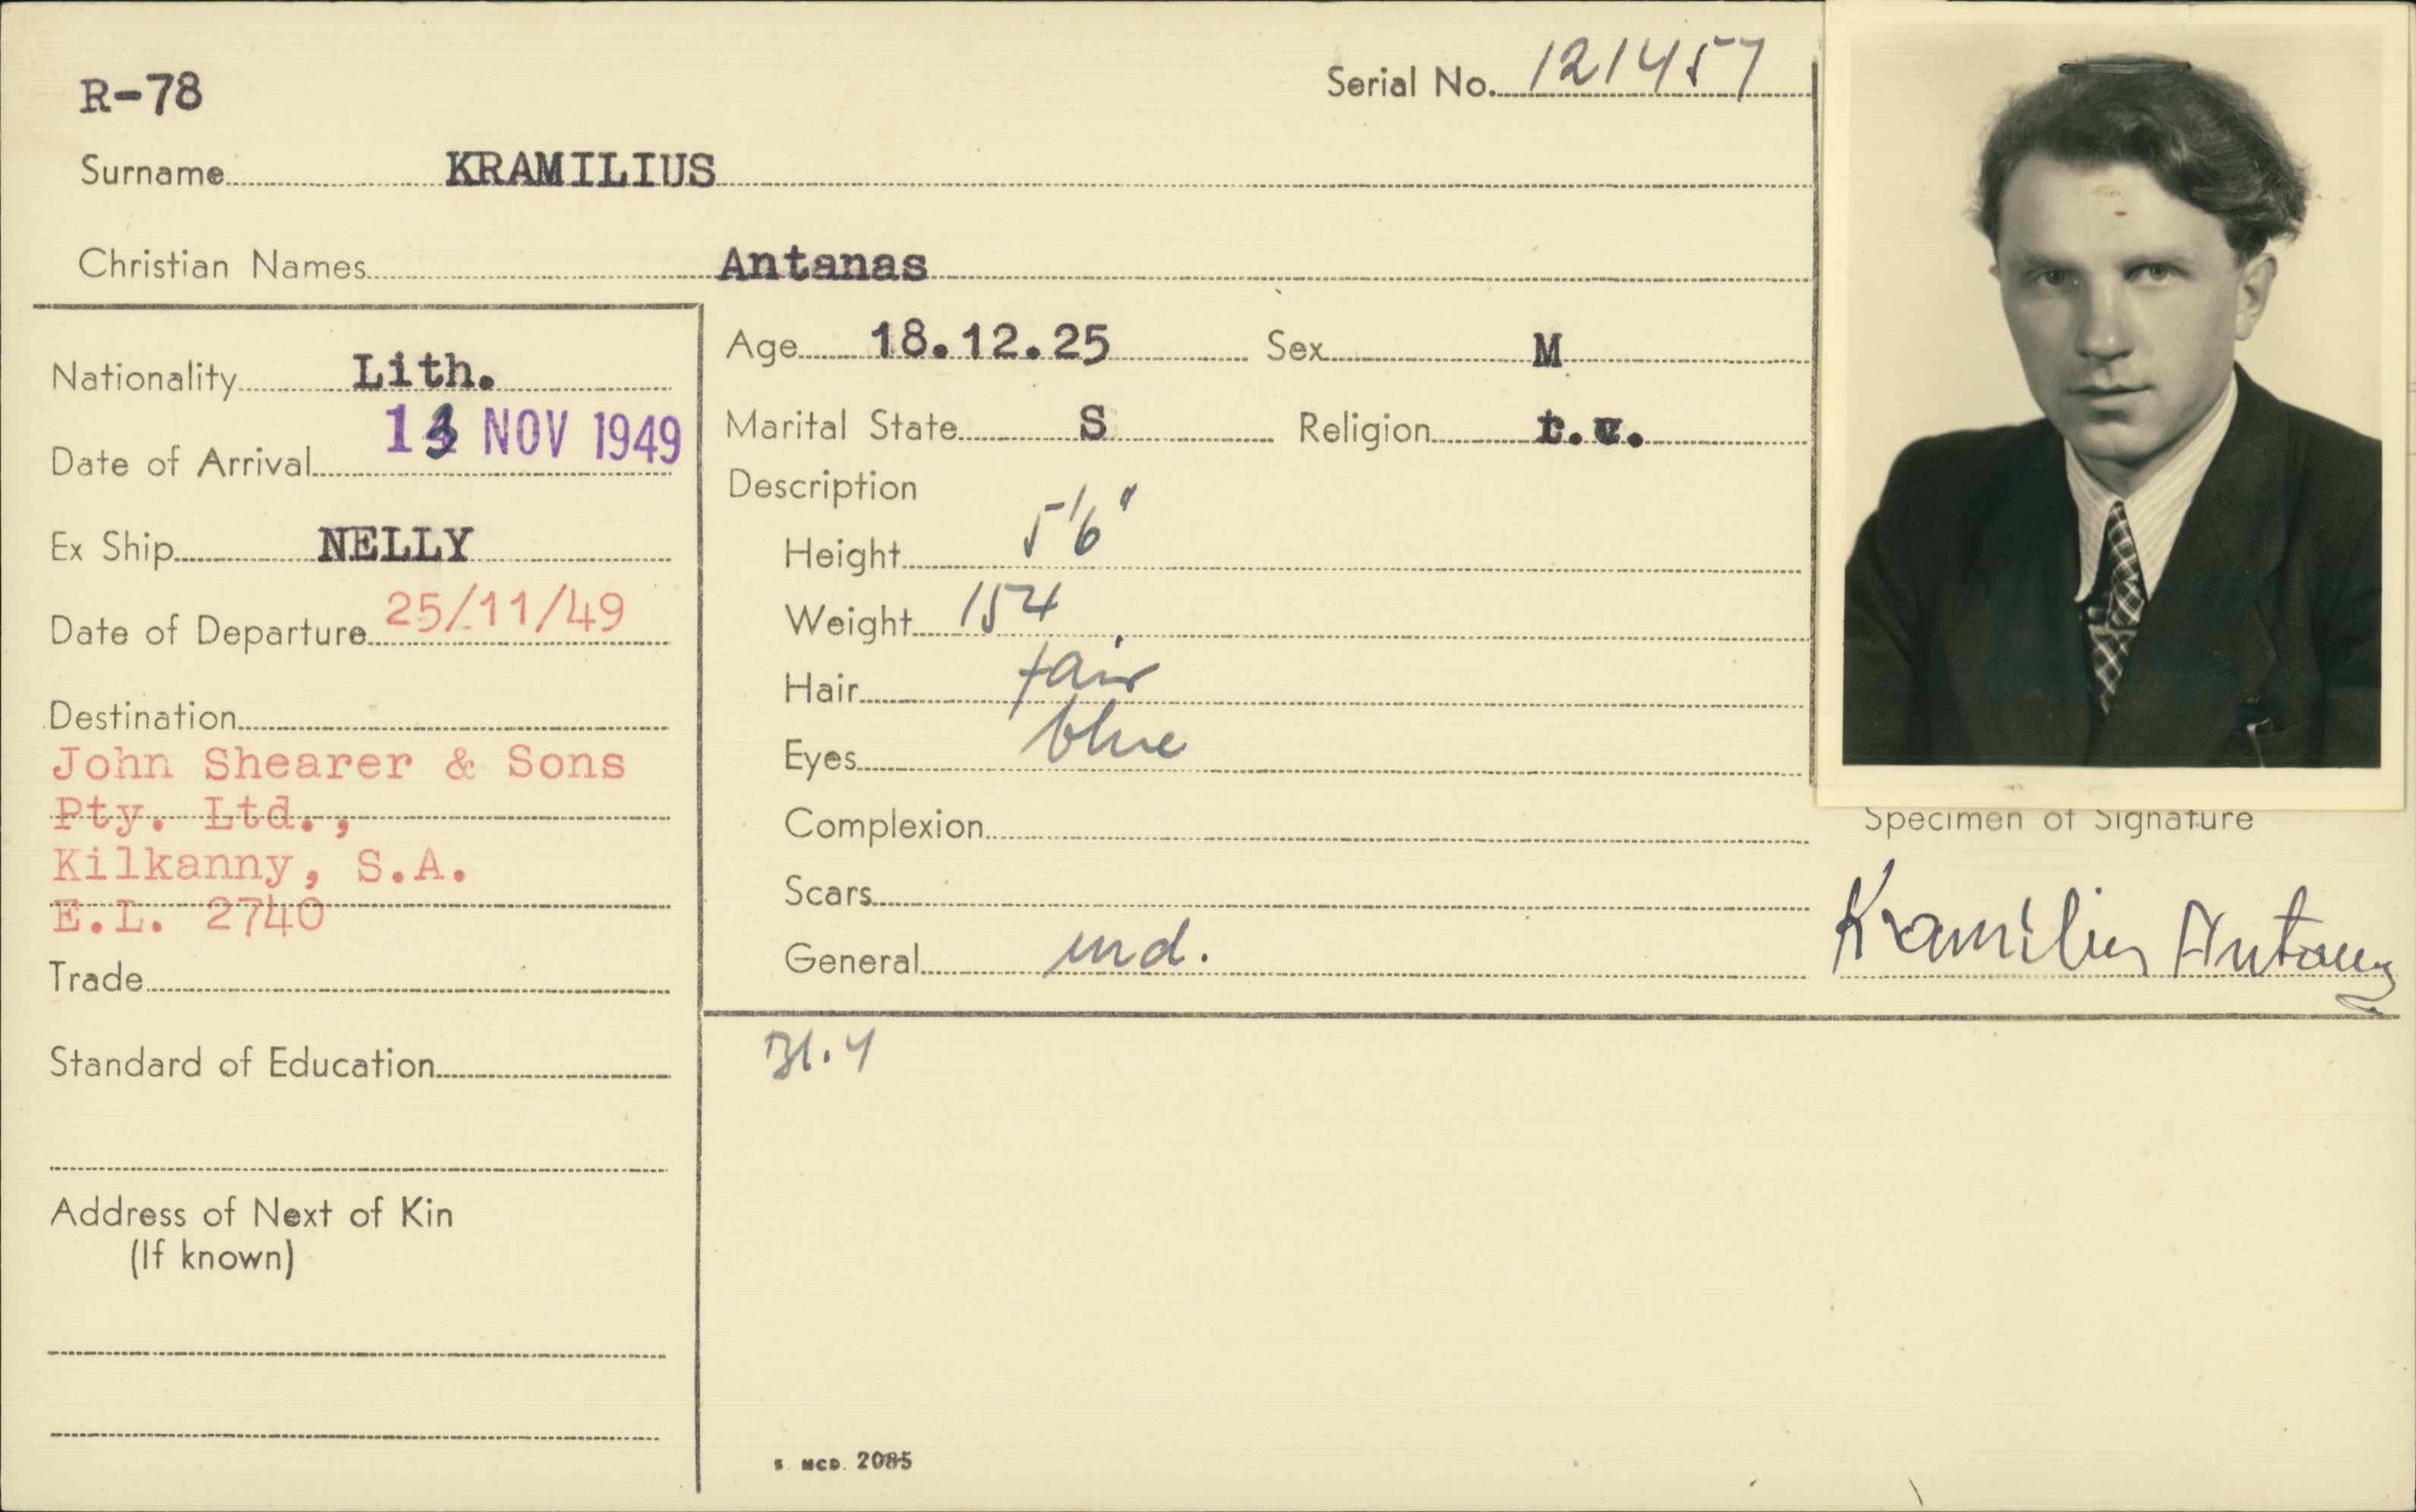 R-78
Serial No. 121457
Surname KRAMILIUS
Christian Names Antanas
Nationality Lith.
Date of Arrival 13 NOV 1949
Ex Ship NELLY
Date of Departure 25/11/49
Destination
John Shearer & Sons
Pty. Ltd.,
Kilkanny, S.A.
E.L. 2740
Trade
Standard of Education
Address of Next of Kin
(If known)
Age 18.12.25 Sex M
Marital State S Religion r.c.
Description
Height 5'6"
Weight 154
Hair fair
Eyes blue
Complexion
Scars
General
Specimen of Signature
Kramilius Antanas
S. MCD. 2085